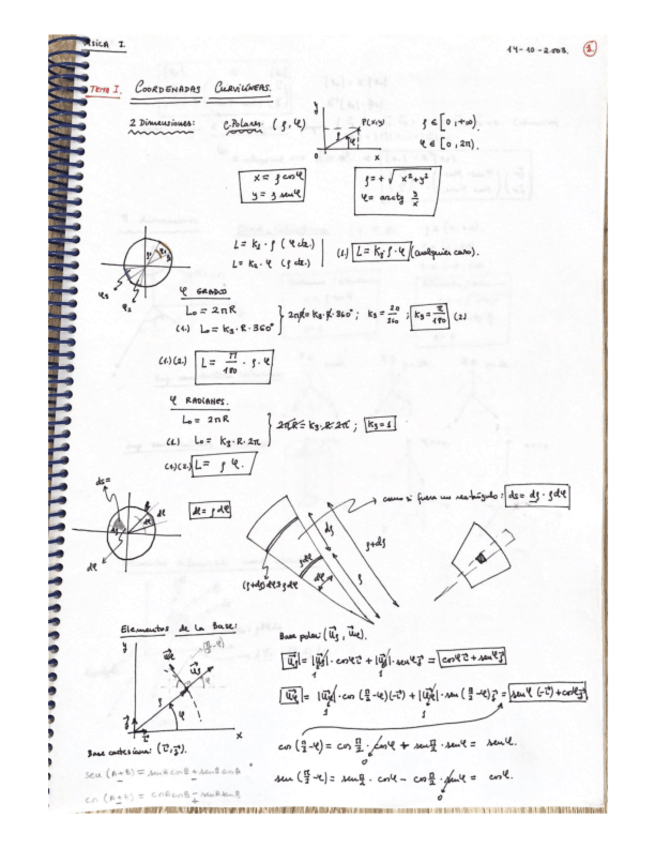 FÍSICA I.
14-10-2.003. 1.
TEMA I. COORDENADAS CURVILÍNEAS.
2 Dimensiones: C.Polares. (ρ, φ)
y P(x,y) ρ φ O x
ρ ∈ [0, +∞).
φ ∈ [0, 2π).
x = ρ cosφ
y = ρ senφ
ρ = + √x²+y²
φ = arctg y/x
L = K₁ · ρ (φ cte.)
L = K₂ · φ (ρ cte.)
(1.) L = K₃ · ρ · φ (cualquier caso).
φ GRADOS
L₀ = 2πR
(1.) L₀ = K₃ · R · 360°
2πR = K₃ · R · 360° ; K₃ = 2π/360 ; K₃ = π/180 (2.)
(1.)(2.) L = π/180 · ρ · φ
φ RADIANES.
L₀ = 2πR
(1.) L₀ = K₃ · R · 2π
2πR = K₃ · R · 2π ; K₃ = 1
(1.)(2.) L = ρ φ.
ds =
dl = ρ dφ
como si fuera un rectángulo: ds = dρ · ρdφ
dρ
ρ+dρ
ρdφ
ρ
dφ
(ρ+dρ)dφ≅ρdφ
Elementos de la Base:
Base polar: (u⃗ρ, u⃗φ).
u⃗ρ = |u⃗ρ| · cosφ i⃗ + |u⃗ρ| · senφ j⃗ = cosφ i⃗ + senφ j⃗
u⃗φ = |u⃗φ| · cos (π/2-φ)(-i⃗) + |u⃗φ| · sen (π/2-φ) j⃗ = senφ (-i⃗) + cosφ j⃗
cos (π/2-φ) = cos π/2 · cosφ + sen π/2 · senφ = senφ.
Base cartesiana: (i⃗, j⃗).
sen (π/2-φ) = sen π/2 · cosφ - cos π/2 · senφ = cosφ.
sen (A±B) = senA cosB ± senB cosA
cos (A±B) = cosA cosB ∓ senA senB